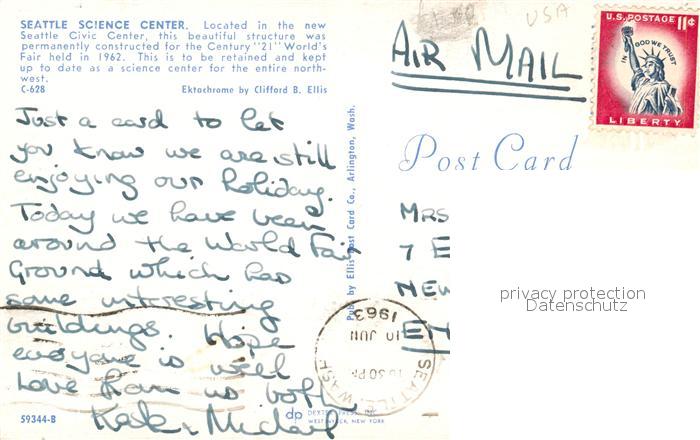 SEATTLE SCIENCE CENTER. Located in the new
Seattle Civic Center, this beautiful structure was
permanently constructed for the Century "21" World's
Fair held in 1962. This is to be retained and kept
up to date as a science center for the entire north-
west.
C-628 Ektachrome by Clifford B. Ellis
Just a card to let
you know we are still
enjoying our holiday.
Today we have been
around the World Fair
Ground which has
some interesting
buildings. Hope
everyone is well
Love from us both
59344-B
Pub. by Ellis Post Card Co., Arlington, Wash.
dp DEXTER PRESS, INC.
WEST NYACK, NEW YORK
USA
AIR MAIL
U.S. POSTAGE 11¢
IN GOD WE TRUST
LIBERTY
Post Card
MRS
7 E
NEW
EN
SEATTLE, WASH.
10 JUN
1963
privacy protection
Datenschutz